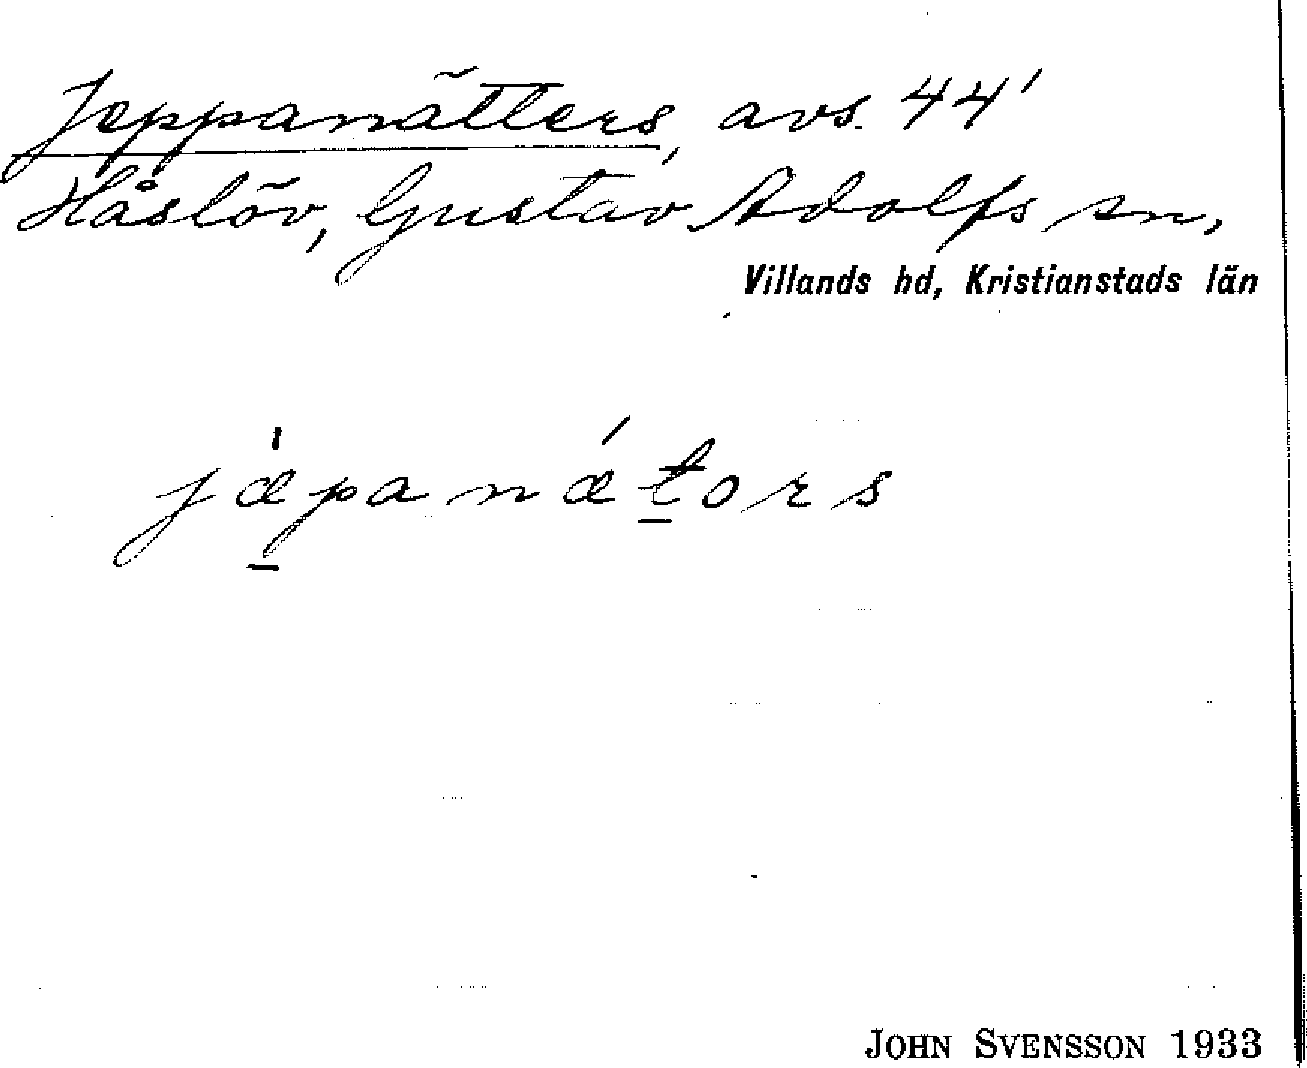 Jeppanätters, avs. 44'
Håslöv, Gustav Adolfs sn,
Villands hd, Kristianstads län
jæ̍p̲anǽt̲ors
JOHN SVENSSON 1933